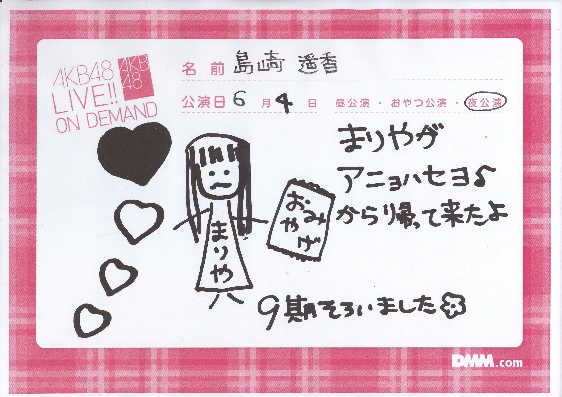 AKB48
LIVE!!
ON DEMAND
AKB
48
名前 島崎 遥香
公演日 6月4日 昼公演・おやつ公演・夜公演
まりやが
アニョハセヨ♪
から帰って来たよ
おみやげ
まりや
9期そろいました
DMM.com